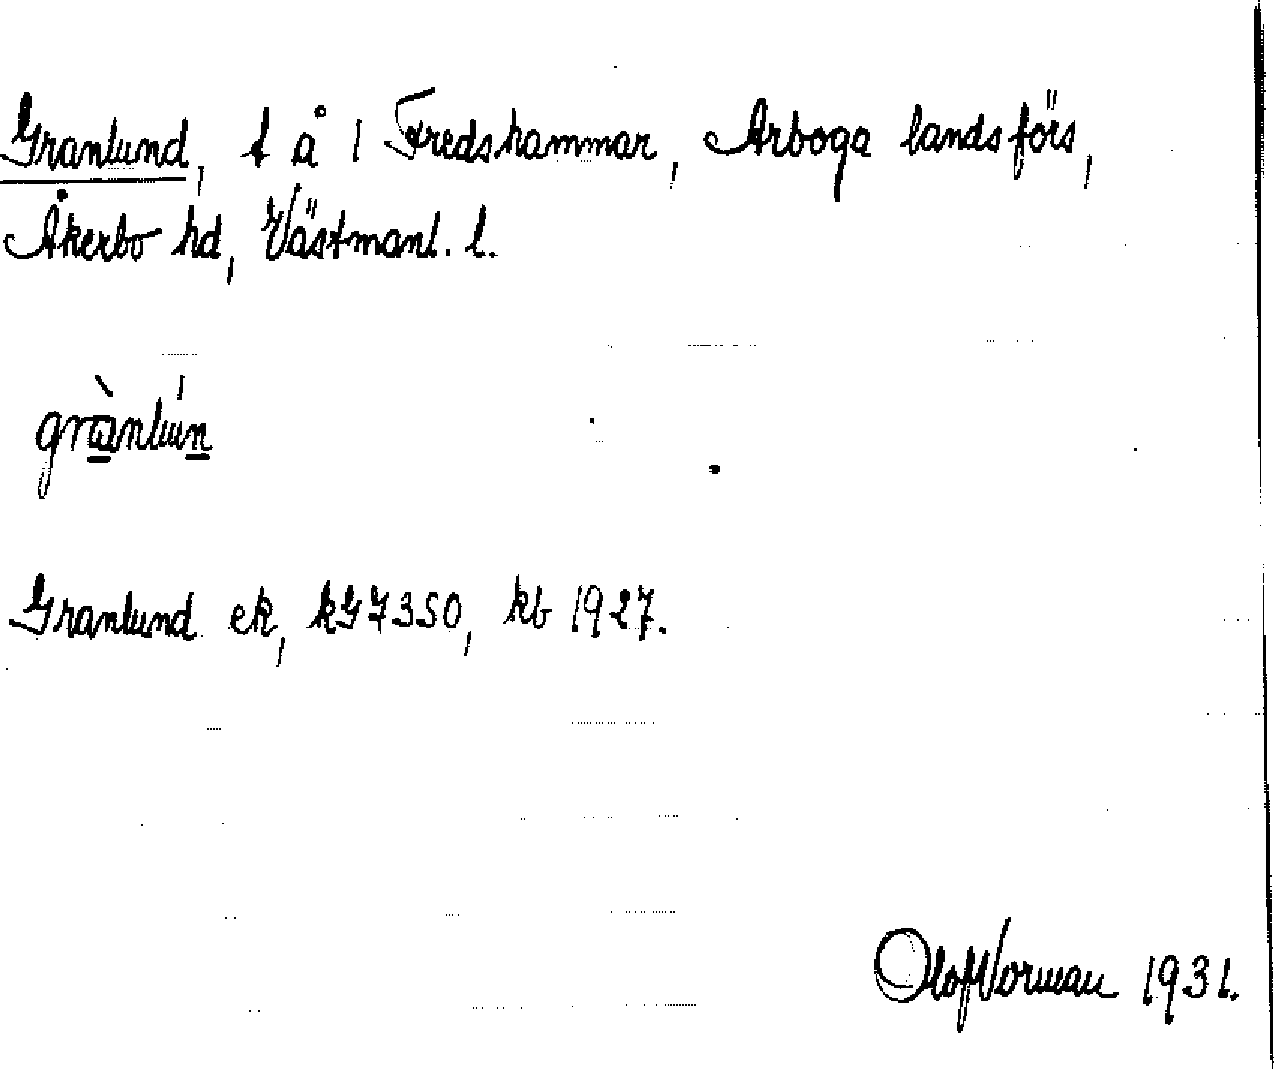 Granlund, t å 1 Fredshammar, Arboga landsförs,
Åkerbo hd, Västmanl. l.
grànlún
Granlund ek, kG7350, kb 1927.
Olof Norman 1931.